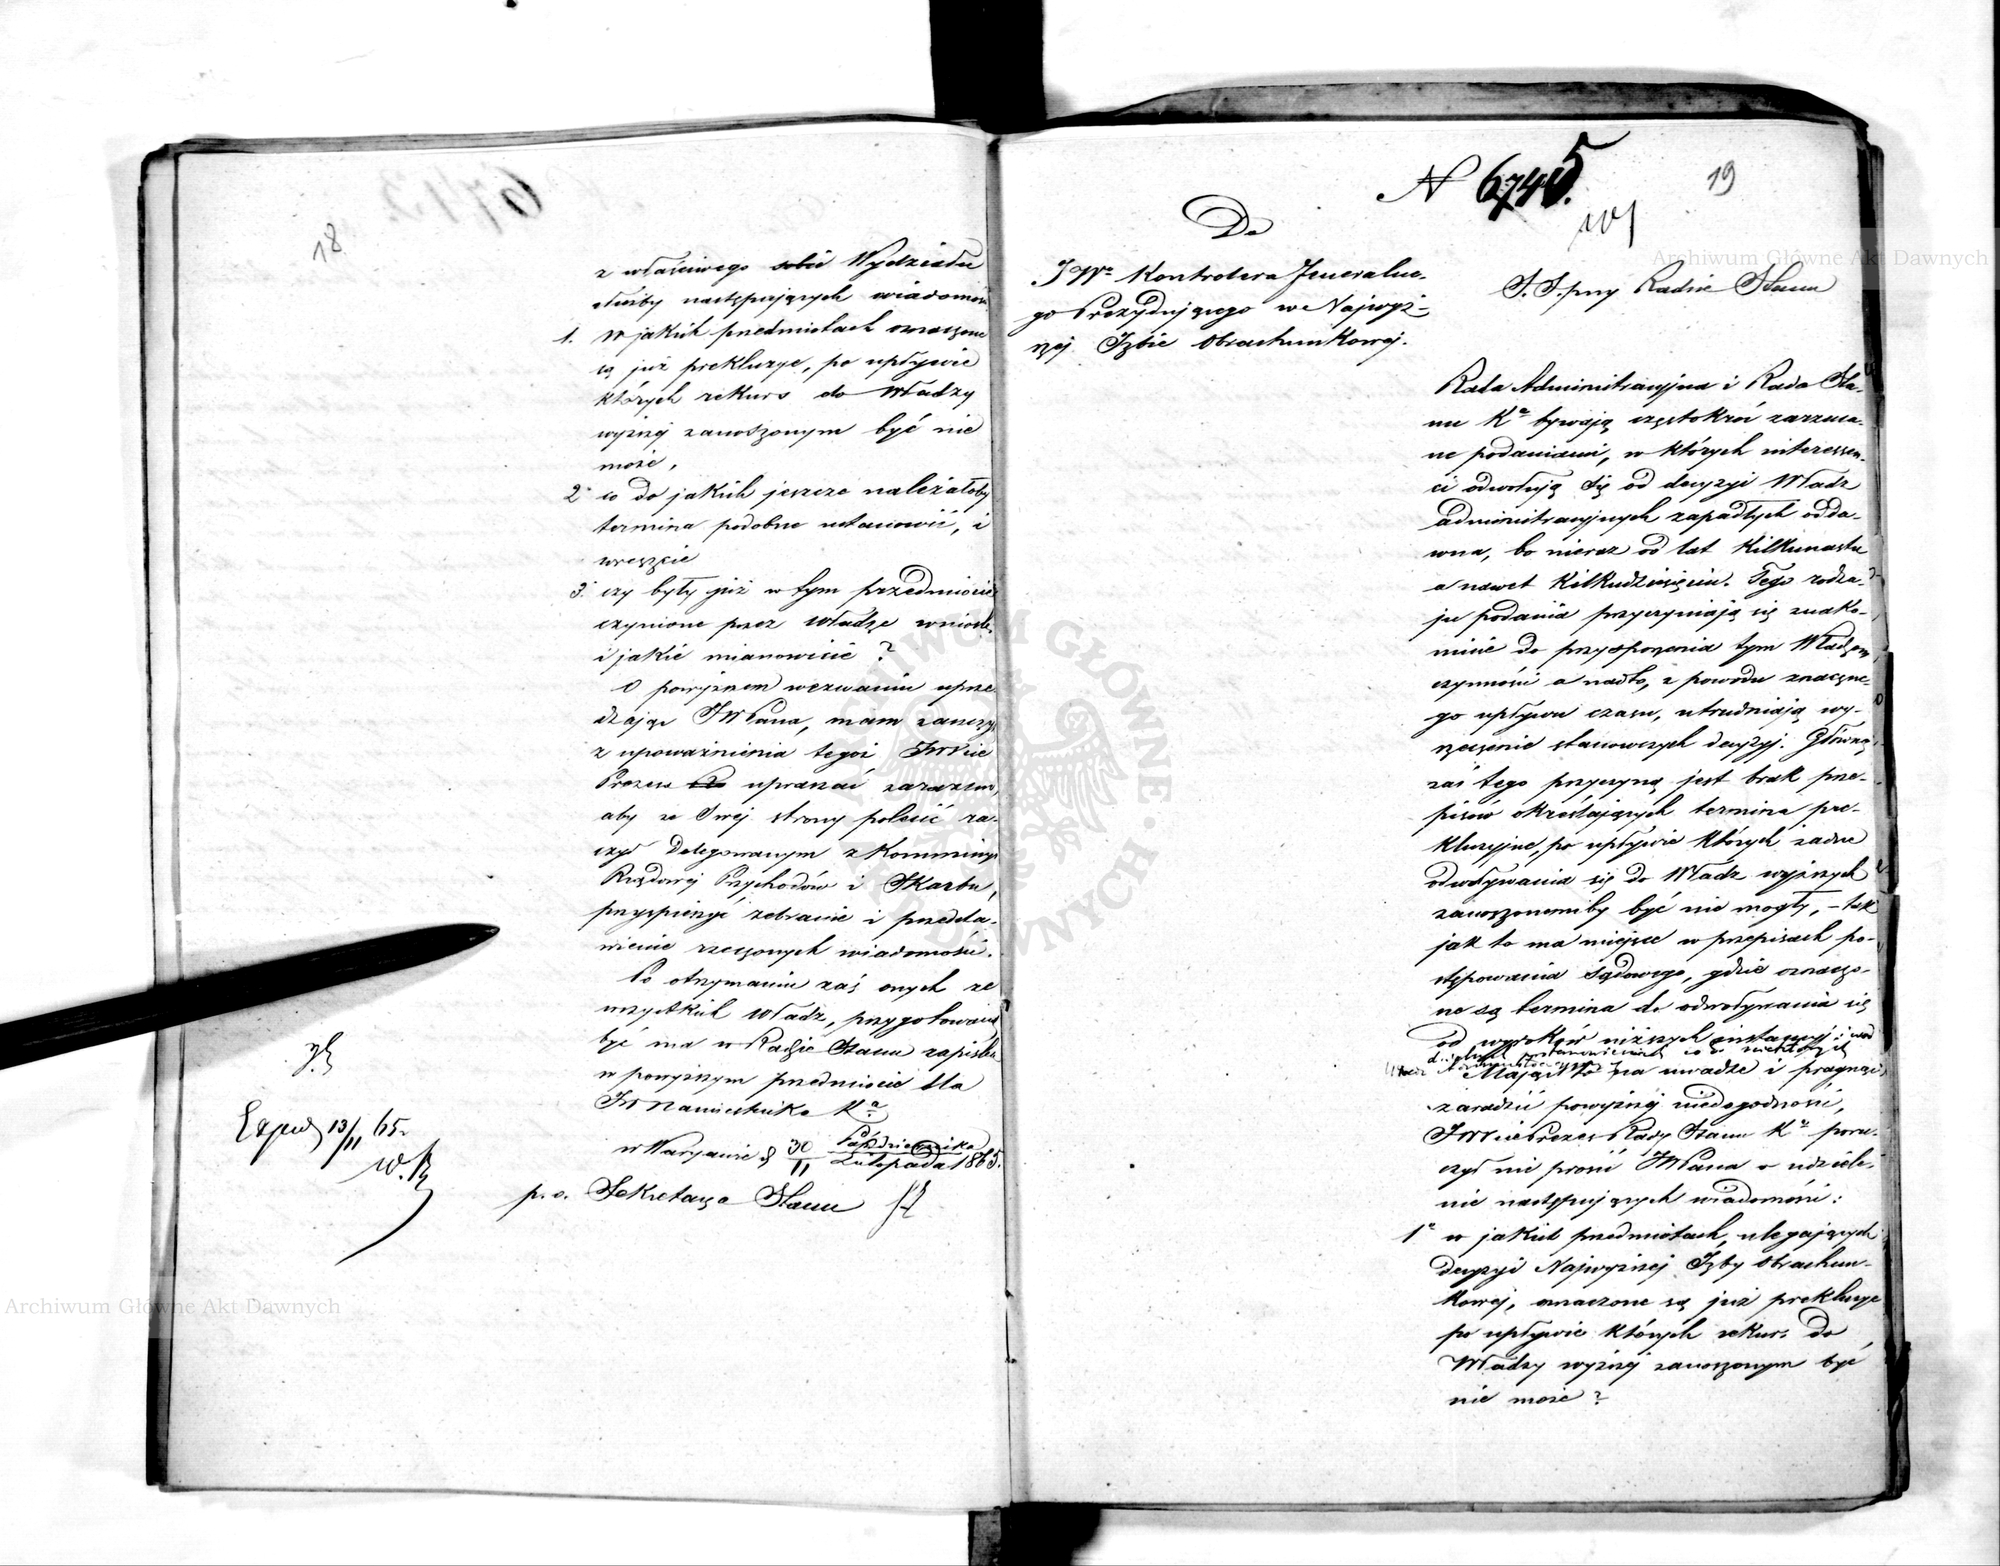 18
z właściwego sobie Wydziału
służby następujących wiadomości
1. w jakich przedmiotach oznaczone
są już prekluzye, po upływie
których rekurs do Władzy
wyższej zanoszonym być nie
może,
2. co do jakich jeszcze należałoby
termina podobne ustanowić, i
wreszcie
3. czy były już w tym przedmiocie
czynione przez Władzę wnioski
i jakie mianowicie?
O powyższem wezwaniu uprze-
dzając JWPana, mam zaszczyt
z upoważnienia tegoż JWnie
Prezesa upraszać zarazem,
aby ze Swej strony polecić ra-
czył Delegowanym z Kommissyi
Rządowej Przychodów i Skarbu,
przyspieszyć zebranie i przedsta-
wienie rzeczonych wiadomości.
Po otrzymaniu zaś onych ze
wszystkich Władz, przygotowaną
być ma w Radzie Stanu zapiska
w powyższym przedmiocie dla
JW Namiestnika Kа
w Warszawie d 30/11 Października/Listopada 1865.
p. o. Sekretarza Stanu
Exped 13/11 65r
N 6745.
19
Do
JWo Kontrolera Jeneralne-
go Prezydującego w Najwyż-
szej Izbie Obrachunkowej.
S. S. przy Radzie Stanu
Rada Administracyjna i Rada Sta-
nu Kа bywają częstokroć zarzuca-
ne podaniami, w których interessen-
ci odwołują się od decyzyi Władz
administracyjnych zapadłych odda-
wna, bo nieraz od lat Kilkunastu
a nawet Kilkudziesięciu. Tego rodza-
ju podania przyczyniają się znako-
micie do przysporzenia tym Władzom
czynności a nadto, z powodu znaczne-
go upływu czasu, utrudniają wy-
rzeczenie stanowczych decyzyj. Główną
zaś tego przyczyną jest brak prze-
pisów określających termina pre-
kluzyjne, po upływie których żadne
odwoływania się do Władz wyższych
zanoszonemiby być nie mogły, – tak
jak to ma miejsce w przepisach po-
stępowania Sądowego, gdzie oznaczo-
ne są termina do odwoływania się
od wyroków niższych instancyj
Mając to na uwadze i pragnąc
zaradzić powyższej niedogodności,
JWnie Prezes Rady Stanu Kа poru-
czył mi prosić JWPana o udziele-
nie następujących wiadomości:
1o w jakich przedmiotach, ulegających
decyzyi Najwyższej Izby Obrachun-
kowej, oznaczone są już prekluzye
po upływie których rekurs do
Władzy wyższej zanoszonym być
nie może?
Archiwum Główne Akt Dawnych
Archiwum Główne Akt Dawnych